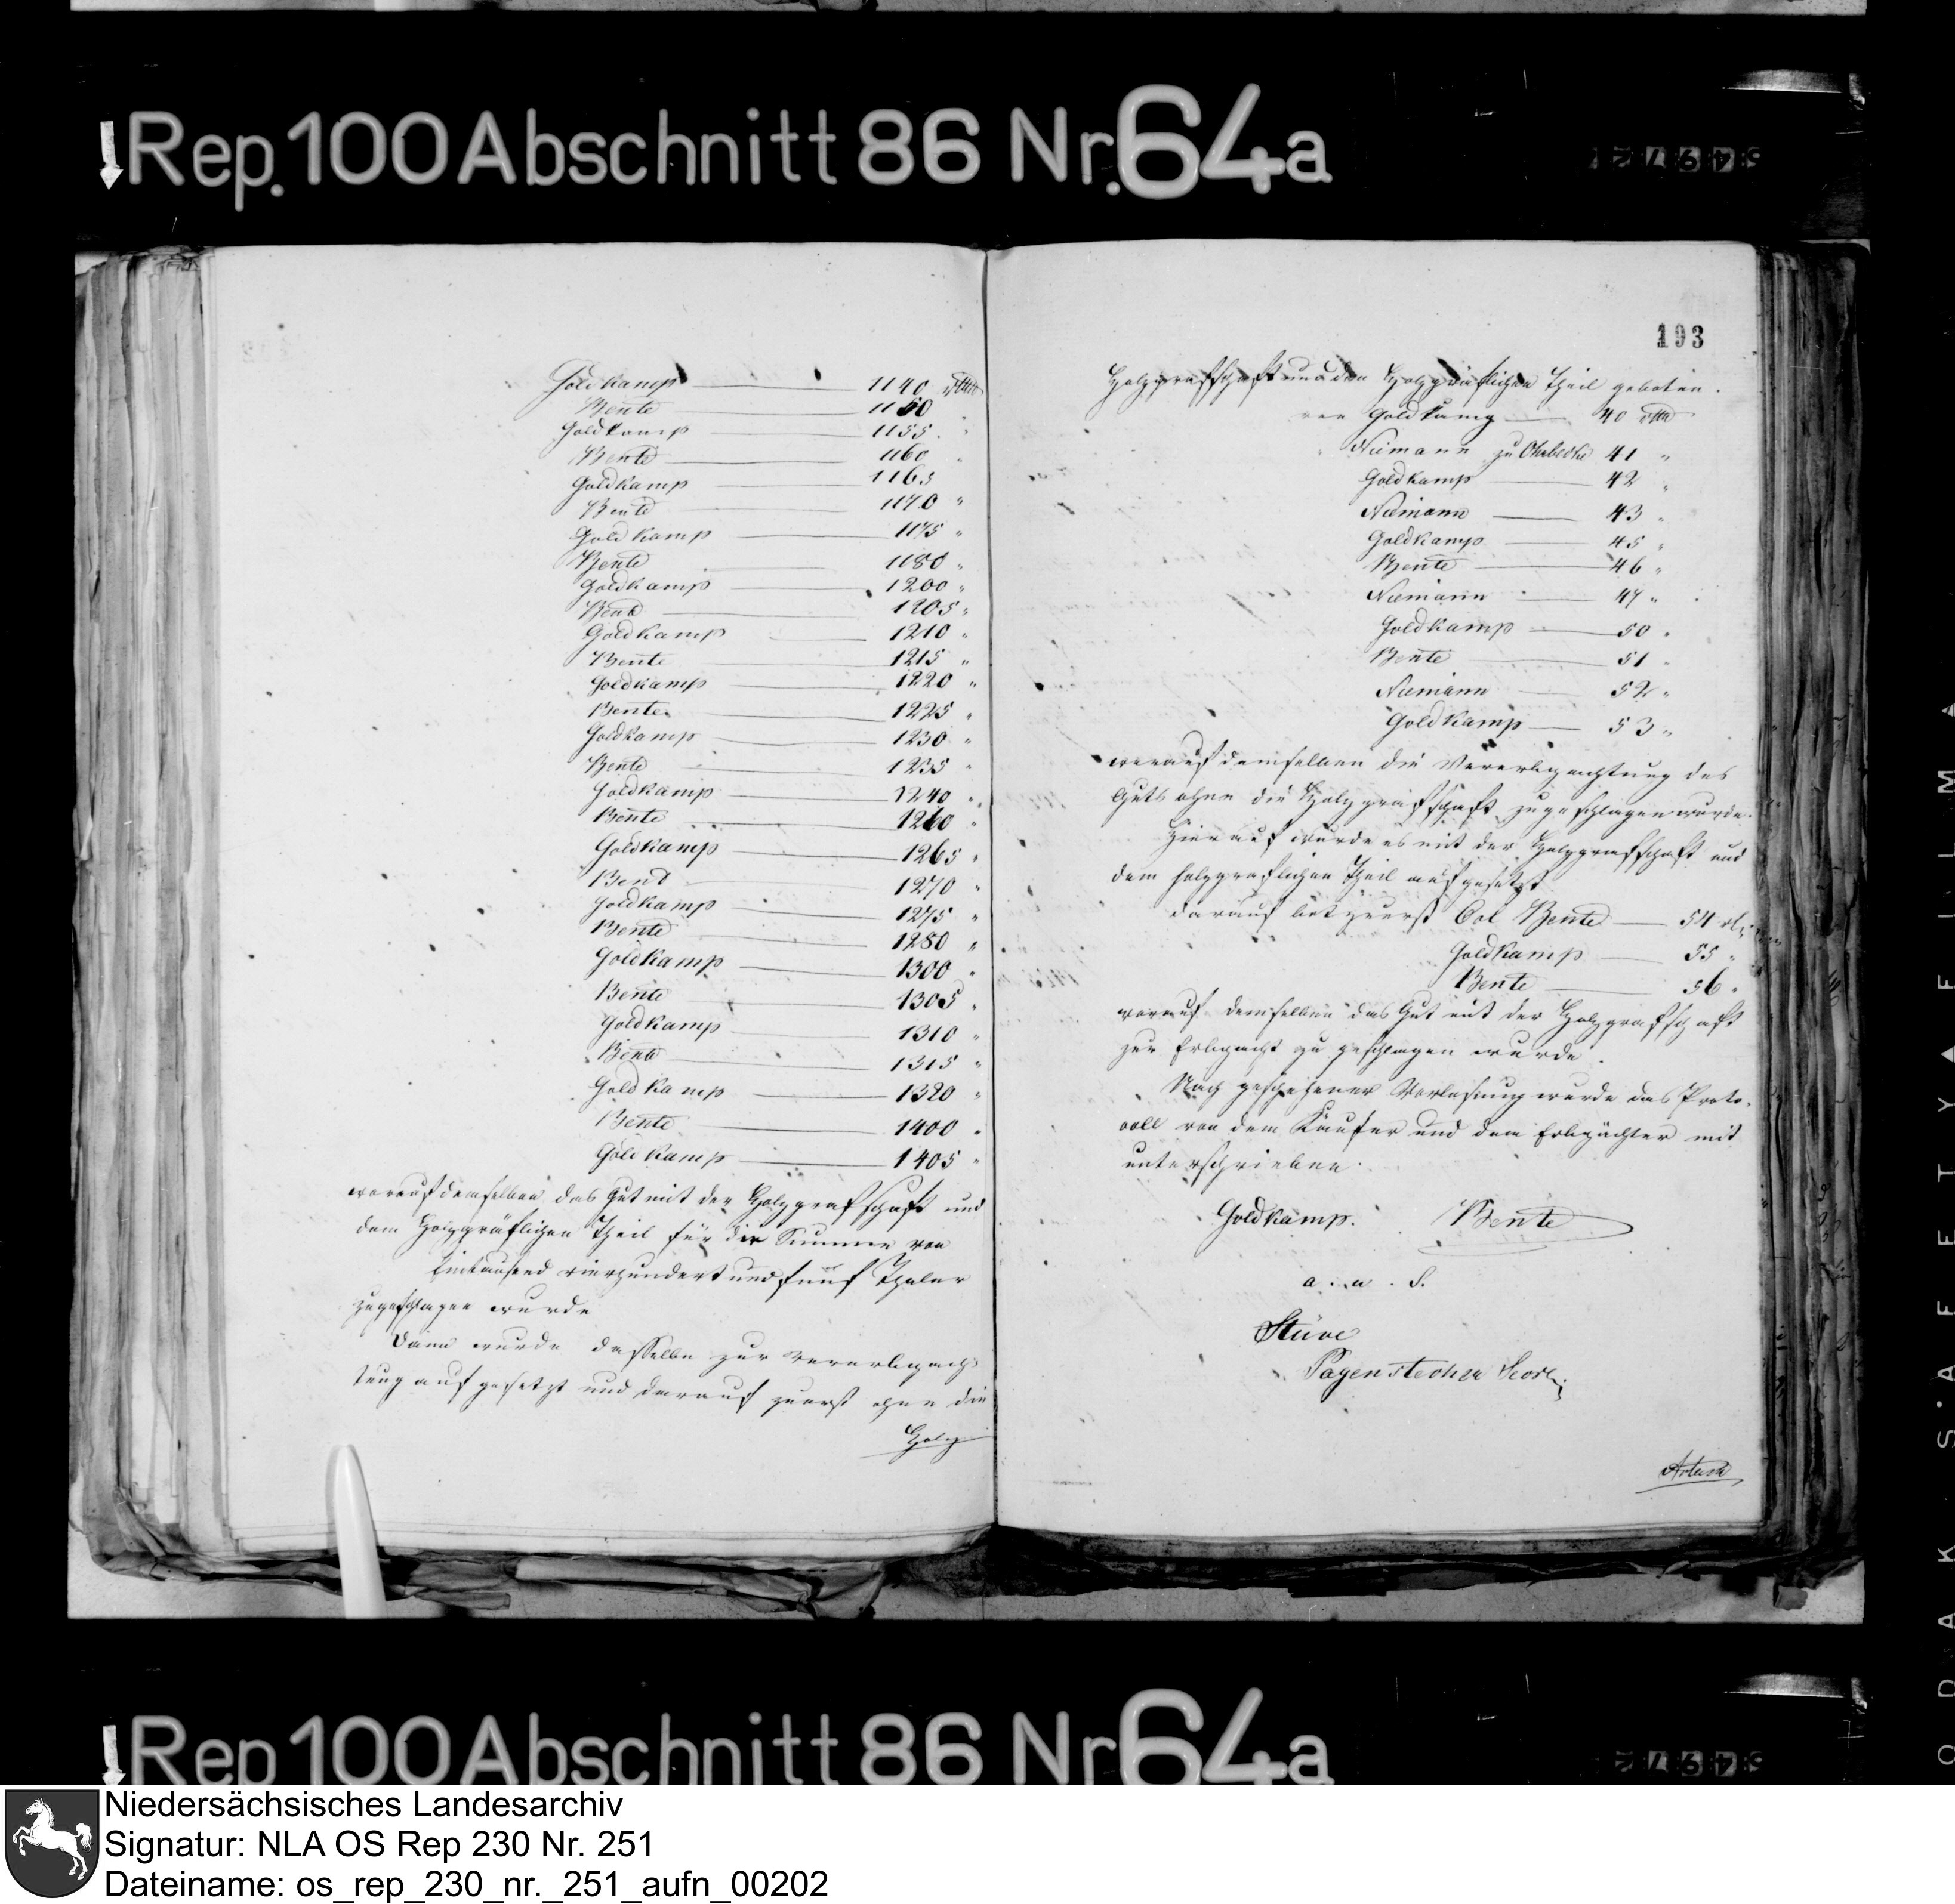 Rep. 100 Abschnitt 86 Nr. 64a
Goldkamp 1140 Rthlr
Bente 1150
Goldkamp 1155 "
Bente 1160 "
Goldkamp 1165
Bente 1170 "
Goldkamp 1175 "
Bente 1180 "
Goldkamp 1200 "
Bente 1205 "
Goldkamp 1210 "
Bente 1215 "
Goldkamp 1220 "
Bente 1225 "
Goldkamp 1230 "
Bente 1235 "
Goldkamp 1240 "
Bente 1260 "
Goldkamp 1265 "
Bente 1270 "
Goldkamp 1275 "
Bente 1280 "
Goldkamp 1300 "
Bente 1305 "
Goldkamp 1310 "
Bente 1315 "
Goldkamp 1320 "
Bente 1400 "
Goldkamp 1405 "
worauf demselben das Gut mit der Holzgrafschaft und
dem Holzgräflichen Theil für die Summe von
Eintausend vierhundert und fünf Thaler
zugeschlagen wurde
Dann wurde dasselbe zur Vererbpach-
tung aufgesetzt und darauf zuerst ohne die
Holz
193
Holzgrafschaft und den Holzgräflichen Theil geboten.
von Goldkamp 40 Rthlr
Niemann zu Ohrbecke 41 "
Goldkamp 42 "
Niemann 43 "
Goldkamp 45 "
Bente 46 "
Niemann 47 "
Goldkamp 50 "
Bente 51 "
Niemann 52 "
Goldkamp 53 "
worauf demselben die Vererbpachtung des
Guts ohne die Holzgrafschaft zugeschlagen wurde.
Hierauf wurde es mit der Holzgrafschaft und
dem holzgräflichen Theil aufgesetzt
darauf bot zuerst Col Bente 54 rt
Goldkamp 55 "
Bente 56 "
worauf demselben das Gut mit der Holzgrafschaft
zur Erbpacht zugeschlagen wurde.
Nach geschehener Verlesung wurde das Proto-
coll von dem Käufer und dem Erbpächter mit
unterschrieben.
Goldkamp. Bente
a. u. S.
Stüve
Pagenstecher
Rep 100 Abschnitt 86 Nr 64a
Niedersächsisches Landesarchiv
Signatur: NLA OS Rep 230 Nr. 251
Dateiname: os_rep_230_nr._251_aufn_00202